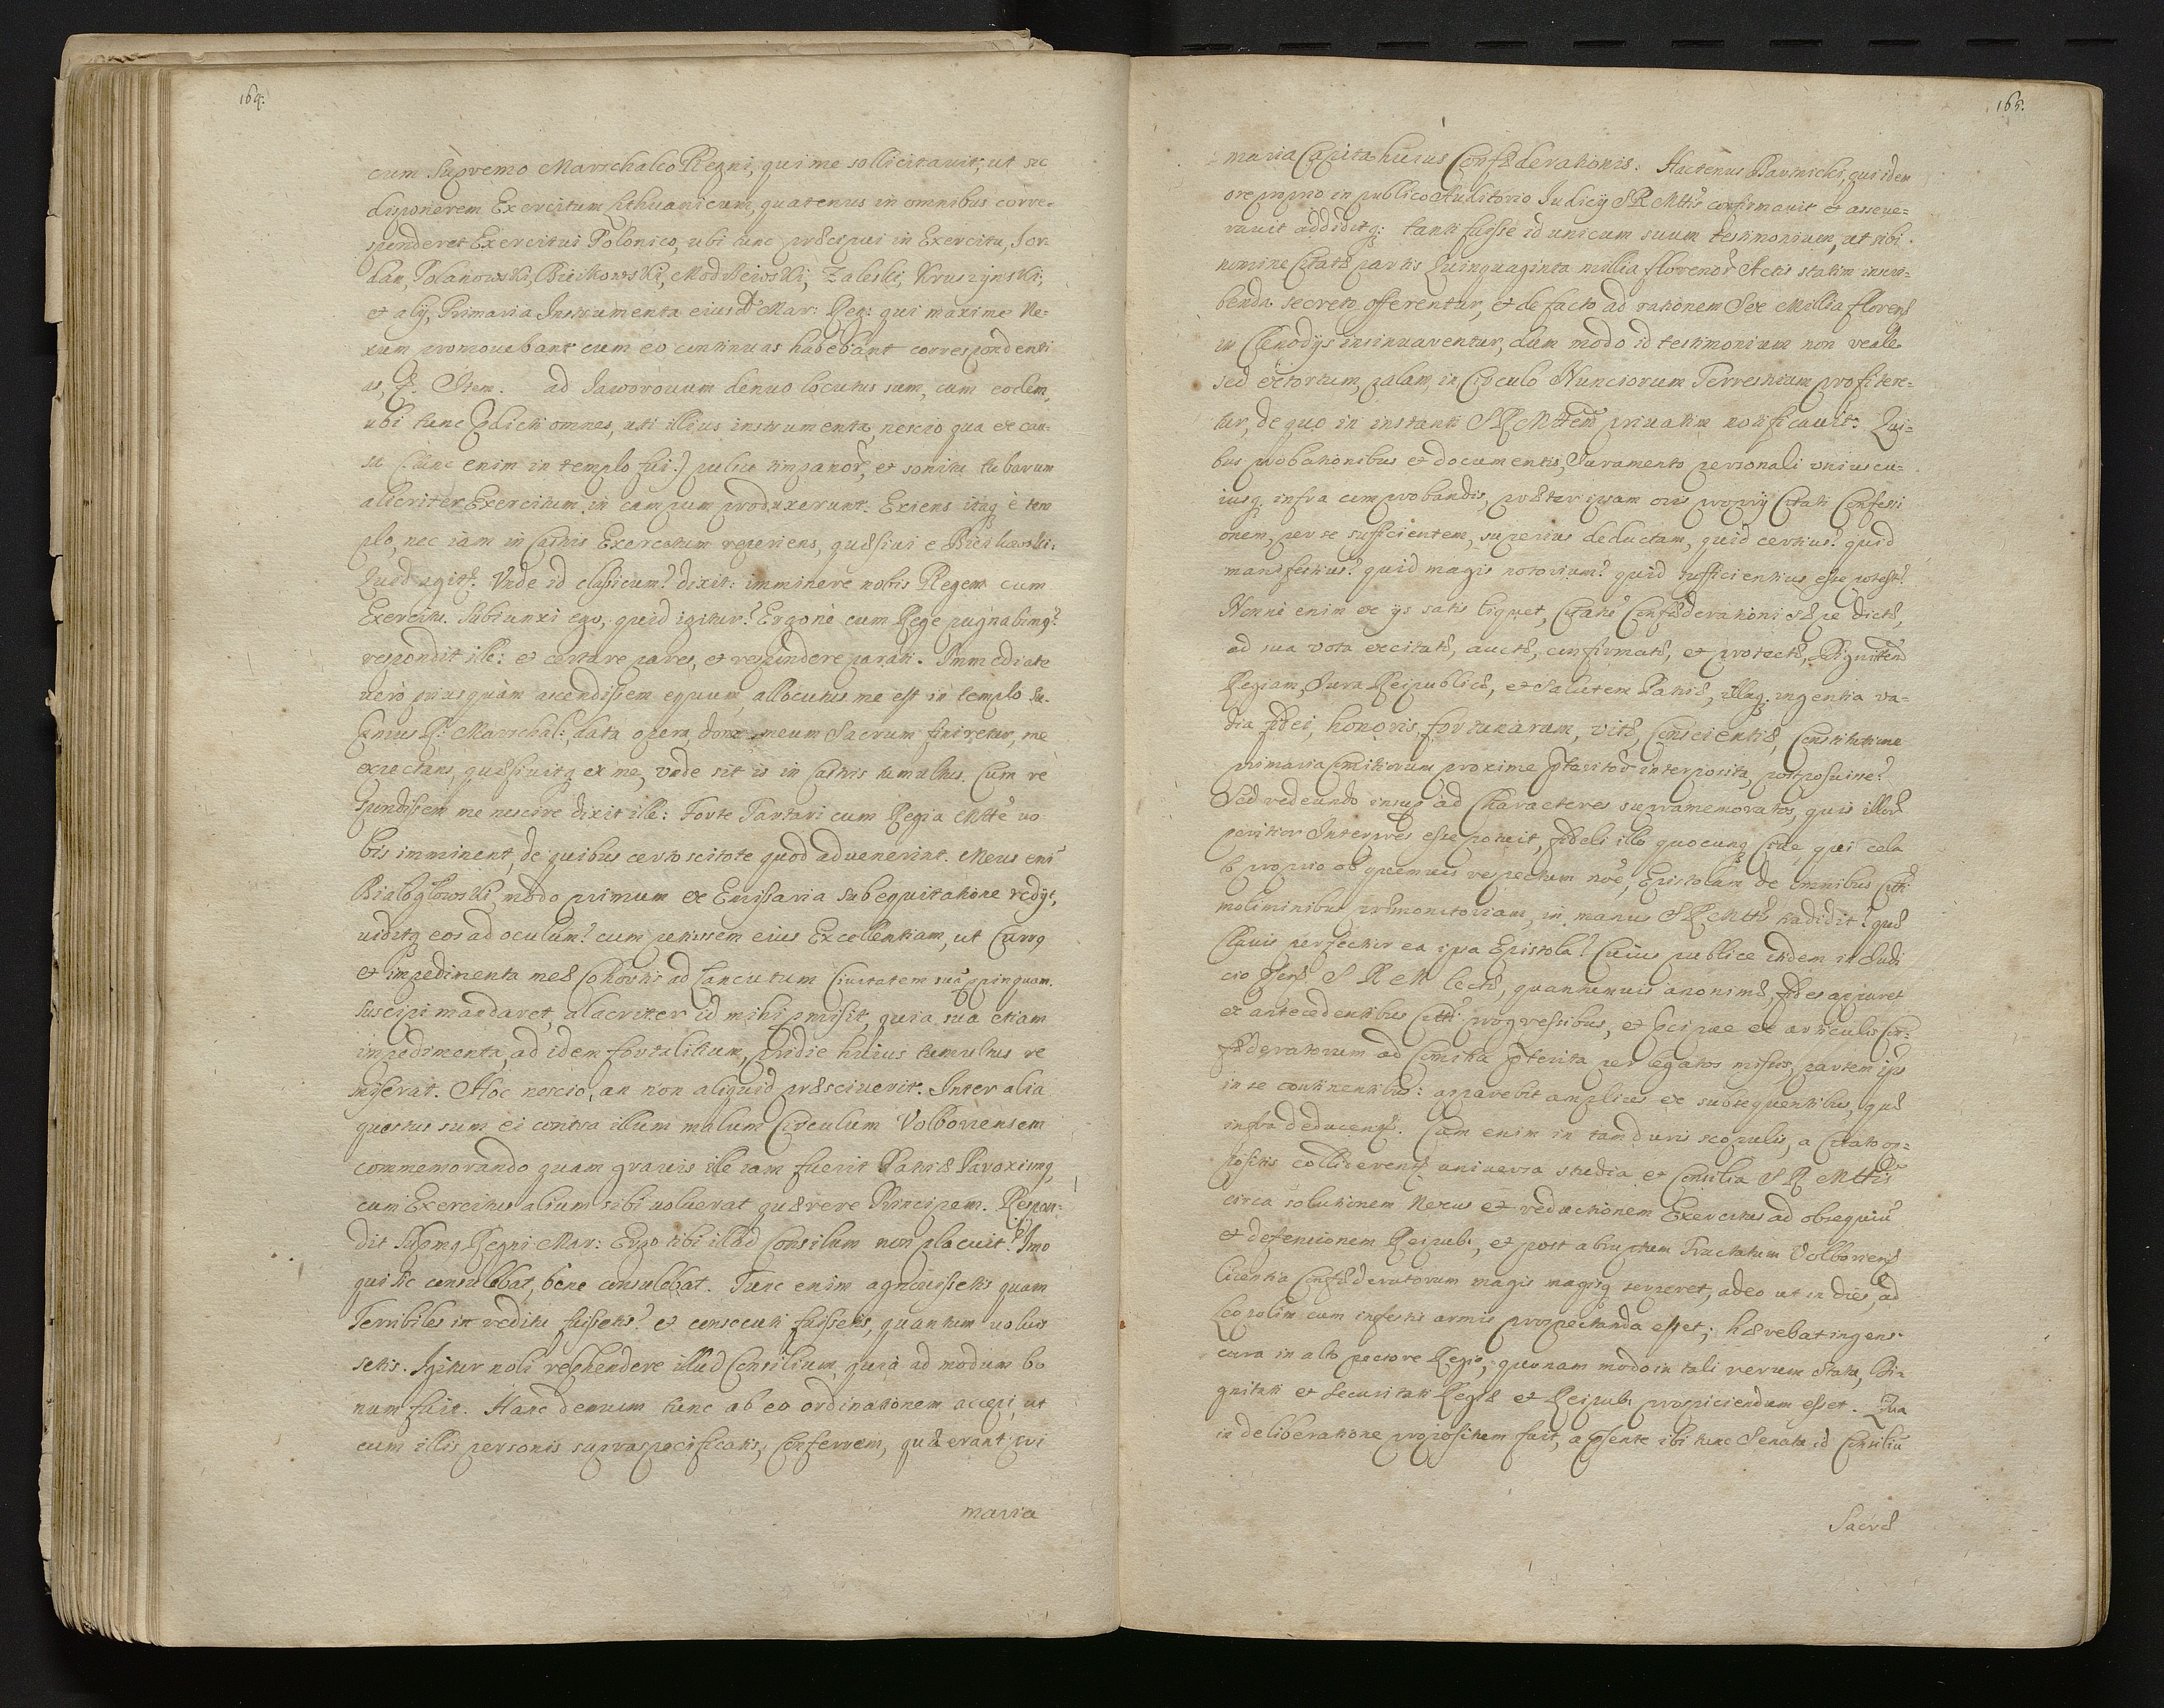 164.
cum Supremo Marschalco Regni, qui me sollicitauit, ut sic
disponerem Exercitum Lithuanicum, quatenus in omnibus corre-
sponderet Exercitui Polonico, ubi tunc præcipui in Exercitu, Jor-
dan, Polanowski, Bieńkowski, Modlriewski, Zaleski, Kruszynski,
et alij, Primaria Instrumenta eiusd Mar: Reg: qui maxime Ne-
xum promouebant cum eo continuas habebant correspondenti
as, &. Item. ad Jaworouum denuo locutus sum, cum eodem,
ubi tunc pdicti omnes, uti illius instrumenta, nescio qua ex cau-
sa (tunc enim in templo fui) pulsu timpanor, et sonitu tubarum
alicriter Exercitum in campum produxerunt. Exiens itaq è tem
plo, nec iam in Castris Exercitum reperiens, quæsiui e
Quid agit? Unde id classicum? dixit: imminere nobis Regem cum
Exercitu. Subiunxi ego, quid igitur? Ergonè cum Rege pugnabimq?
respondit ille: et certare pares, et respondere parati. Immediate
uerò priusquàm ascendissem equum, allocutus me est in templo Su-
premus R: Marschal:, data opera, donec meum Sacrum finiretur, me
expectans, quæsiuitq ex me, unde sit is in Castris tumultus. Cum re
spondissem me nescire dixit ille: Forte Tartari cum Regia Mtte uo
bis imminent, de quibus certo scitote quod aduenerint. Meus eni
Białogłowski, modo primum ex Emissaria subequitatione redijt,
uiditq eos ad oculum? cum petiissem eius Excellentiam, ut Currq
et impedimenta meæ Cohortis ad Lancutum Ciuitatem suã ppinquam.
suscipi mandaret, alacriter id mihi pmisit, quia sua etiam
impedimenta, ad idem fortalitium, pridie huius tumultus re
miserat. Hoc nescio, an non aliquid præsciuerit. Inter alia
questus sum ei contra illum malum Circulum Volboriensem
commemorando quam grauis ille iam fuerit Patriæ Paroximq,
cum Exercitus alium sibi uoluerat quærere Principem. Respon-
dit Supmq Regni Mar: Ergo tibi illud Consilium non placuit? Imo
qui sic consulebat, bene consulebat. Tunc enim agnouissetis quam
Terribiles in reditu fuissetis? et consecuti fuissetis, quantum uoluis
setis. Igitur noli rephendere illud Consilium, quia ad modum bo
num fuit. Hanc demum tunc ab eo ordinationem accepi, ut
cum illis personis supraspecificatis, Conferrem, quæ erant pri
maria
165.
maria Capita huius Confæderationis. Hactenus Parnicki, qui idem
ore proprio in publico Auditorio Iudicij S R Mttis confirmauit et asseue-
rauit addiditq: tanti fuisse id unicum suum testimonium, ut sibi
nomine Citatæ partis Quinquaginta millia florenor Actis statim inscri-
benda secreto offerentur, et de facto ad rationem Sex Millia floren
in Clenodijs insinuarentur, dum modo id testimonium non reale
sed extortum, palam, in Circulo Nunciorum Terrestrium profitere-
tur, de quo in instanti S R Mttem priuatim notificauit. Qui-
bus probationibus et documentis, Iuramento personali vniuscu-
iusq. infra comprobandis, præter ipsam oris proprij Citati Confessi
onem, per se sufficientem, superius deductam, quid certius? quid
manifestius? quid magis notorium? quid sufficientius esse potest?
Nonne enim ex ijs satis liquet, Citatũ Confæderationi sæpe dictæ,
ad sua vota excitatæ, auctæ, confirmatæ, et protectæ, Dignittem
Regiam, Iura Reipublicæ, et Salutem Patriæ, illaq. ingentia va-
dia fidei, honoris, fortunarum, vitæ, Conscientiæ, Constitutione
primaria Comitiorum proxime ptaritor interposita, postposuisse?
Sed redeundo insup ad Characteres supramemoratos, quis illor
peritior Interpres esse potuit, fideli illo quocunq Ciue, qui cela
to proprio ob quemuis respectum noe, Epistolam de omnibus Citti
moliminibus præmonitoriam, in manus S R Mttis tradidit? quæ
Clauis perfectior ea ipsa Epistola? Cuius publice itidem in Iudi
cio psenti S R M lectæ, quantumuis anonimæ, fides apparet
ex antecedentibus Citti progressibus, et præcipue ex articulis Con-
fæderatorum ad Comitia pterita per legatos missos, partem ips
in se continentibus: apparebit amplius ex subsequentibus, quæ
infra deducent. Cum enim in tam duris scopulis, a Citato op-
positis colliderent uniuersa studia et Consilia S R Mttis
circa solutionem Nexus et reductionem Exercitus ad obsequiũ
et defensionem Reipub:, et post abruptum Tractatum Volborien
licentia Confæderatorum magis magisq serperet, adeo ut in dies, ad
Leopolim cum infestis armis prospectanda esset; hærebat ingens
cura in alto pectore Regio, quonam modo in tali rerum statu, Di-
gnitati et Securitati Regiæ et Reipub: prospiciendum esset. Qua
in deliberatione propositum fuit, a psente ibi tunc Senatu id Consiliũ
Sacræ